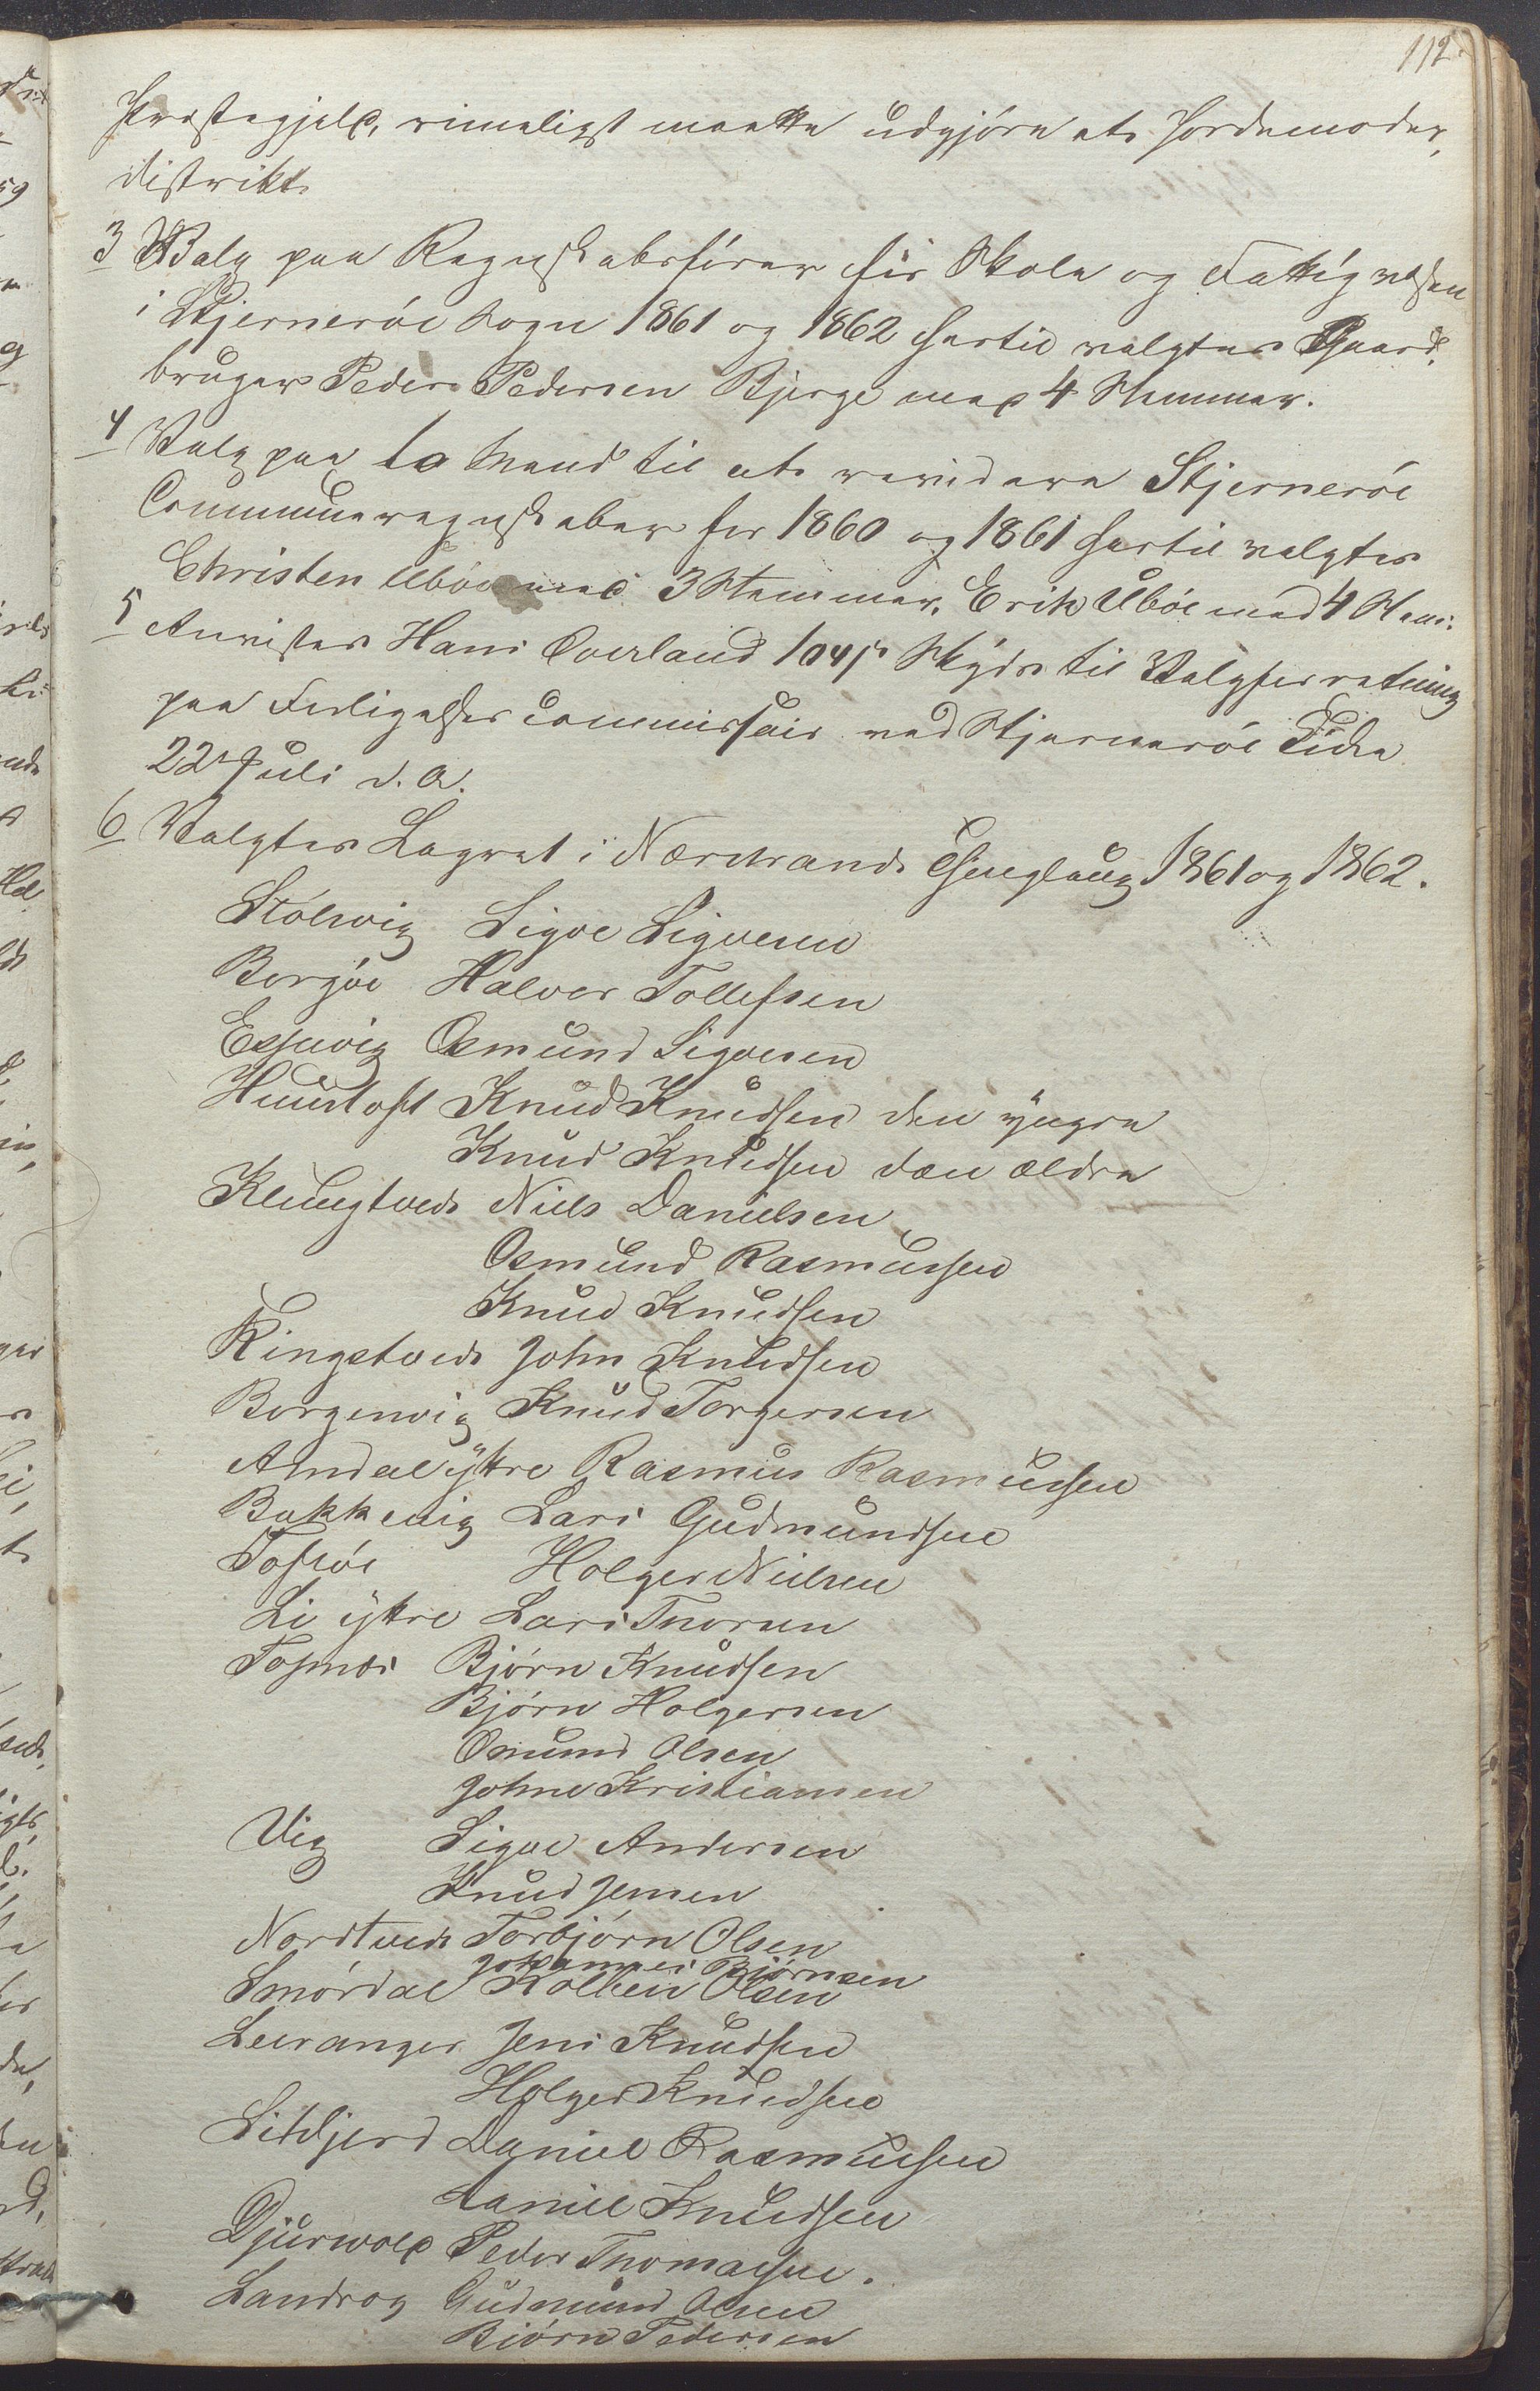 112.
Præstegjeld, rimeligst maatte udgjøre et Jordemoder,
distrikt.
3 Valg paa Regnskabsfører for Skole og Fattigvæsen
i Stjernerøe Sogn 1861 og 1862 hertil valgtes Gaard,
bruger Peder Pedersen Bjerge med 4 Stemmer.
4 Valg paa to Mænd til at revidere Stjernerøe
Communeregnskaber for 1860 og 1861 hertil valgtes
Christen Ubøe med 3 Stemmer, Erik Ubøe med 4 Stem:
5 Anvistes Hans Overland Skyds til Valgforretning
paa Forligelsescommissair ved Stjernerøe Kirke
22 Juli d. A.
6 Valgtes Lagret i Nærstrands Thinglaug 1861 og 1862.
Stølsvig Sigve Sigvesen
Borgøe Halvor Tollefsen
Espevig Osmund Sigvesen
Huustoft Knud Knudsen den yngre
Knud Knudsen den ældre
Klungtvedt Niels Danielsen
Osmund Rasmussen
Knud Knudsen
Ringstvedt John Knudsen
Borgenvig Knud Torgersen
Amdal ytre Rasmus Rasmussen
Bakkevig Lars Gudmundsen
Toftøe Holger Nielsen
Li ytre Lars Thorsen
Tofsnæs Bjørn Knudsen
Bjørn Holgersen
Osmund Olsen
Johne Kristiansen
Vig Sigve Andersen
Knud Jensen
Nordtvedt Torbjørn Olsen
Johannes Bjørnsen
Smørdal Kolben Olsen
Leeranger Jens Knudsen
Holger Knudsen
Litlfjerd Daniel Rasmussen
Daniel Knudsen
Djurvold Peder Thomassen.
Sandvog Gudmund Olsen
Bjørn Pedersen